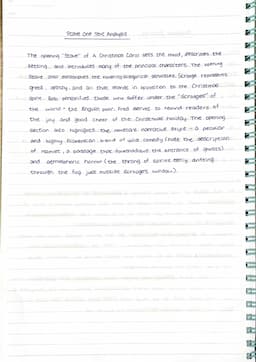 Stave One Text Analysis
The opening "Stave" of A Christmas Carol sets the mood, describes the
setting, and introduces many of the principal characters. The opening
Stave also establishes the novella's allegorical Scrooge represents
greed, apathy, and all that stands in opposition to the Christmas
spirit. Bob personifies those who suffer under the "Scrooges" of
the world - the English poor. Fred serves to remind readers of
the joy and good cheer of the Christmas holiday. The opening
section also highlights the narrative style - a peculiar
and highly Dickensian blend of wild comedy (note the description
of Hamlet, a passage that foreshadows the entrance of ghosts)
and atmospheric horror (the throng of spirits eerily drifting
through the fog just outside Scrooge's window).